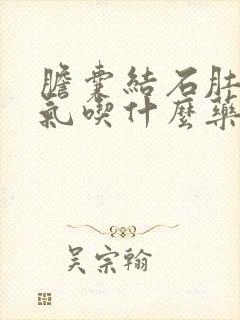 膽囊結石肚
氣喫什麼藥
吳宗翰